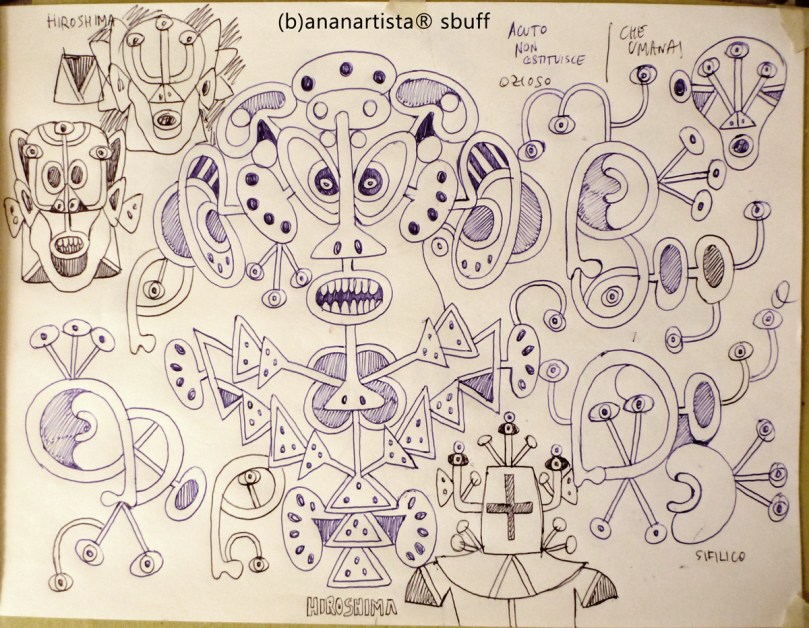 (b)ananartista® sbuff
HIROSHIMA
ACUTO
NON
OZIOSO
CHE
UMANA!
SIFILICO
HIROSHIMA